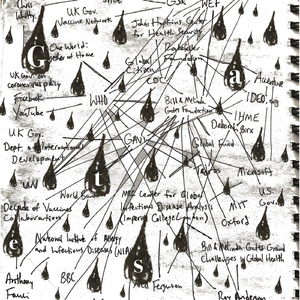 Chris Whitty
UK Gov. Vaccine Network
GSK
WEF
Johns Hopkins Center
for Health Security
One World:
Together at Home
Rockefeller
Foundation
Global
Citizen
CDC
UK Gov. on
coronavirus policy
Accenture
IDEO.org
Facebook
YouTube
WHO
Bill & Melinda
Gates Foundation
IHME
Deborah
Birx
UK Gov.
Dept. of International
Development
GAVI
Global Fund
Microsoft
UN
World Bank
MRC Center for Global
Infectious Disease Analysis
(Imperial College London)
MIT
Oxford
US
Gov.
Decade of Vaccines
Collaborations
National Institute of Allergy
and Infectious Diseases (NIAID)
Bill & Melinda Gates Grand
Challenges of Global Health
Anthony
Fauci
BBC
Neil Ferguson
Roy Anderson
G
a
t
e
s